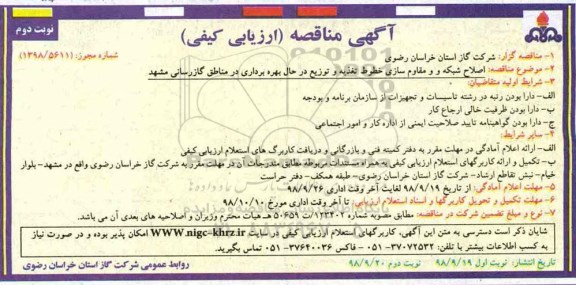 نوبت دوم
آگهی مناقصه (ارزیابی کیفی)
شماره مجوز: (۱۳۹۸/۵۶۱۱)
۱- مناقصه گزار: شرکت گاز استان خراسان رضوی
۲- موضوع مناقصه: اصلاح شبکه و مقاوم سازی خطوط تغذیه و توزیع در حال بهره برداری در مناطق گازرسانی مشهد
۳- شرایط اولیه متقاضیان:
الف- دارا بودن رتبه در رشته تاسیسات و تجهیزات از سازمان برنامه و بودجه
ب- دارا بودن ظرفیت خالی ارجاع کار
ج- دارا بودن گواهینامه تایید صلاحیت ایمنی از اداره کار و امور اجتماعی
۴- سایر شرایط:
الف- ارائه اعلام آمادگی در مهلت مقرر به دفتر کمیته فنی و بازرگانی و دریافت کاربرگ های استعلام ارزیابی کیفی
ب- تکمیل و ارائه کاربرگهای استعلام ارزیابی کیفی به همراه مستندات مربوطه مطابق مندرجات آن در مهلت مقرر به شرکت گاز خراسان رضوی واقع در مشهد- بلوار
خیام- نبش تقاطع ارشاد- شرکت گاز استان خراسان رضوی- طبقه همکف- دفتر حراست
۵- مهلت اعلام آمادگی: از تاریخ ۹۸/۹/۱۹ لغایت آخر وقت اداری ۹۸/۹/۲۶
۶- مهلت تکمیل و تحویل کاربرگها و اسناد استعلام ارزیابی: تا آخر وقت اداری مورخ ۹۸/۱۰/۱۰
۷- نوع و مبلغ تضمین شرکت در مناقصه: مطابق مصوبه شماره ۱۲۳۴۰۲/ت ۵۰۶۵۹ هـ هیات محترم وزیران و اصلاحیه های بعدی آن می باشد.
شایان ذکر است دسترسی به متن این آگهی، کاربرگهای استعلام ارزیابی کیفی در سایت WWW.nigc-khrz.ir امکان پذیر بوده و در صورت نیاز
به کسب اطلاعات بیشتر با تلفن: ۳۷۰۷۲۵۳۲- ۰۵۱ - فاکس ۳۷۶۴۰۰۳۶- ۰۵۱ تماس بگیرید.
تاریخ انتشار: نوبت اول ۹۸/۹/۱۹ نوبت دوم ۹۸/۹/۲۰
روابط عمومی شرکت گاز استان خراسان رضوی